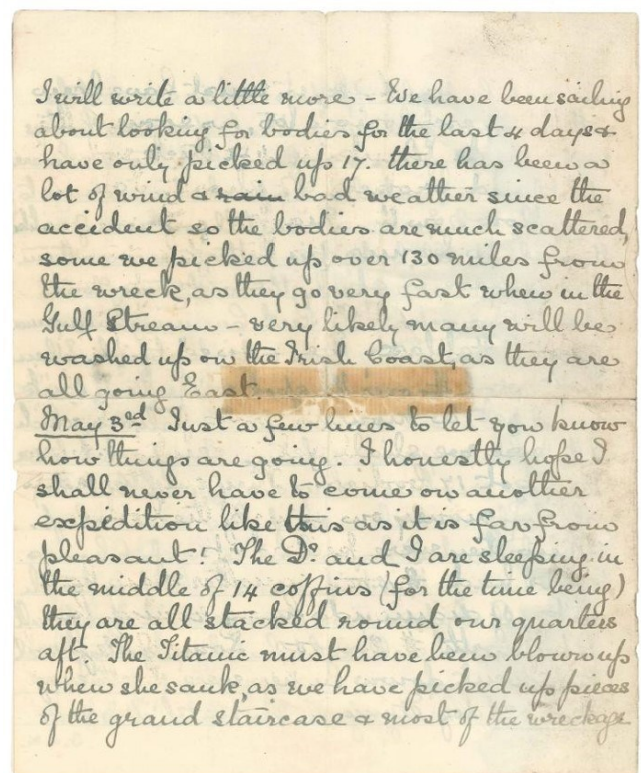 I will write a little more – We have been sailing
about looking for bodies for the last 4 days &
have only picked up 17. there has been a
lot of wind & rain bad weather since the
accident so the bodies are much scattered,
some we picked up over 130 miles from
the wreck, as they go very fast when in the
Gulf Stream – very likely many will be
washed up on the Irish Coast, as they are
all going East.
May 3rd Just a few lines to let you know
how things are going. I honestly hope I
shall never have to come on another
expedition like this as it is far from
pleasant! The Dr. and I are sleeping in
the middle of 14 coffins (for the time being)
they are all stacked round our quarters
aft. The Titanic must have been blown up
when she sank, as we have picked up pieces
of the grand staircase & most of the wreckage